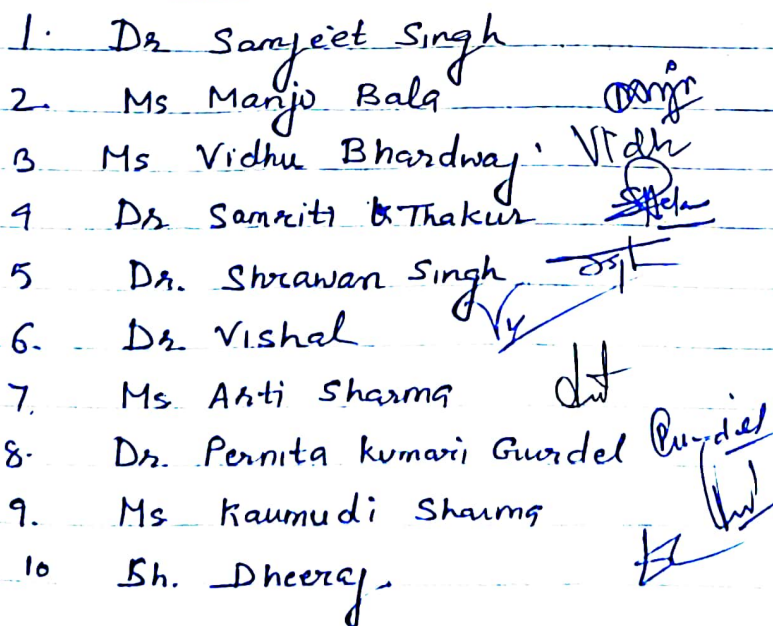 1. Dr Samjeet Singh
2. Ms Manju Bala
3 Ms Vidhu Bhardwaj. Vidh
4 Dr Samriti Thakur
5 Dr. Shrawan Singh
6. Dr Vishal
7. Ms Arti Sharma
8. Dr. Pernita kumari Gurdel
9. Ms Kaumudi Sharma
10 Sh. Dheeraj.